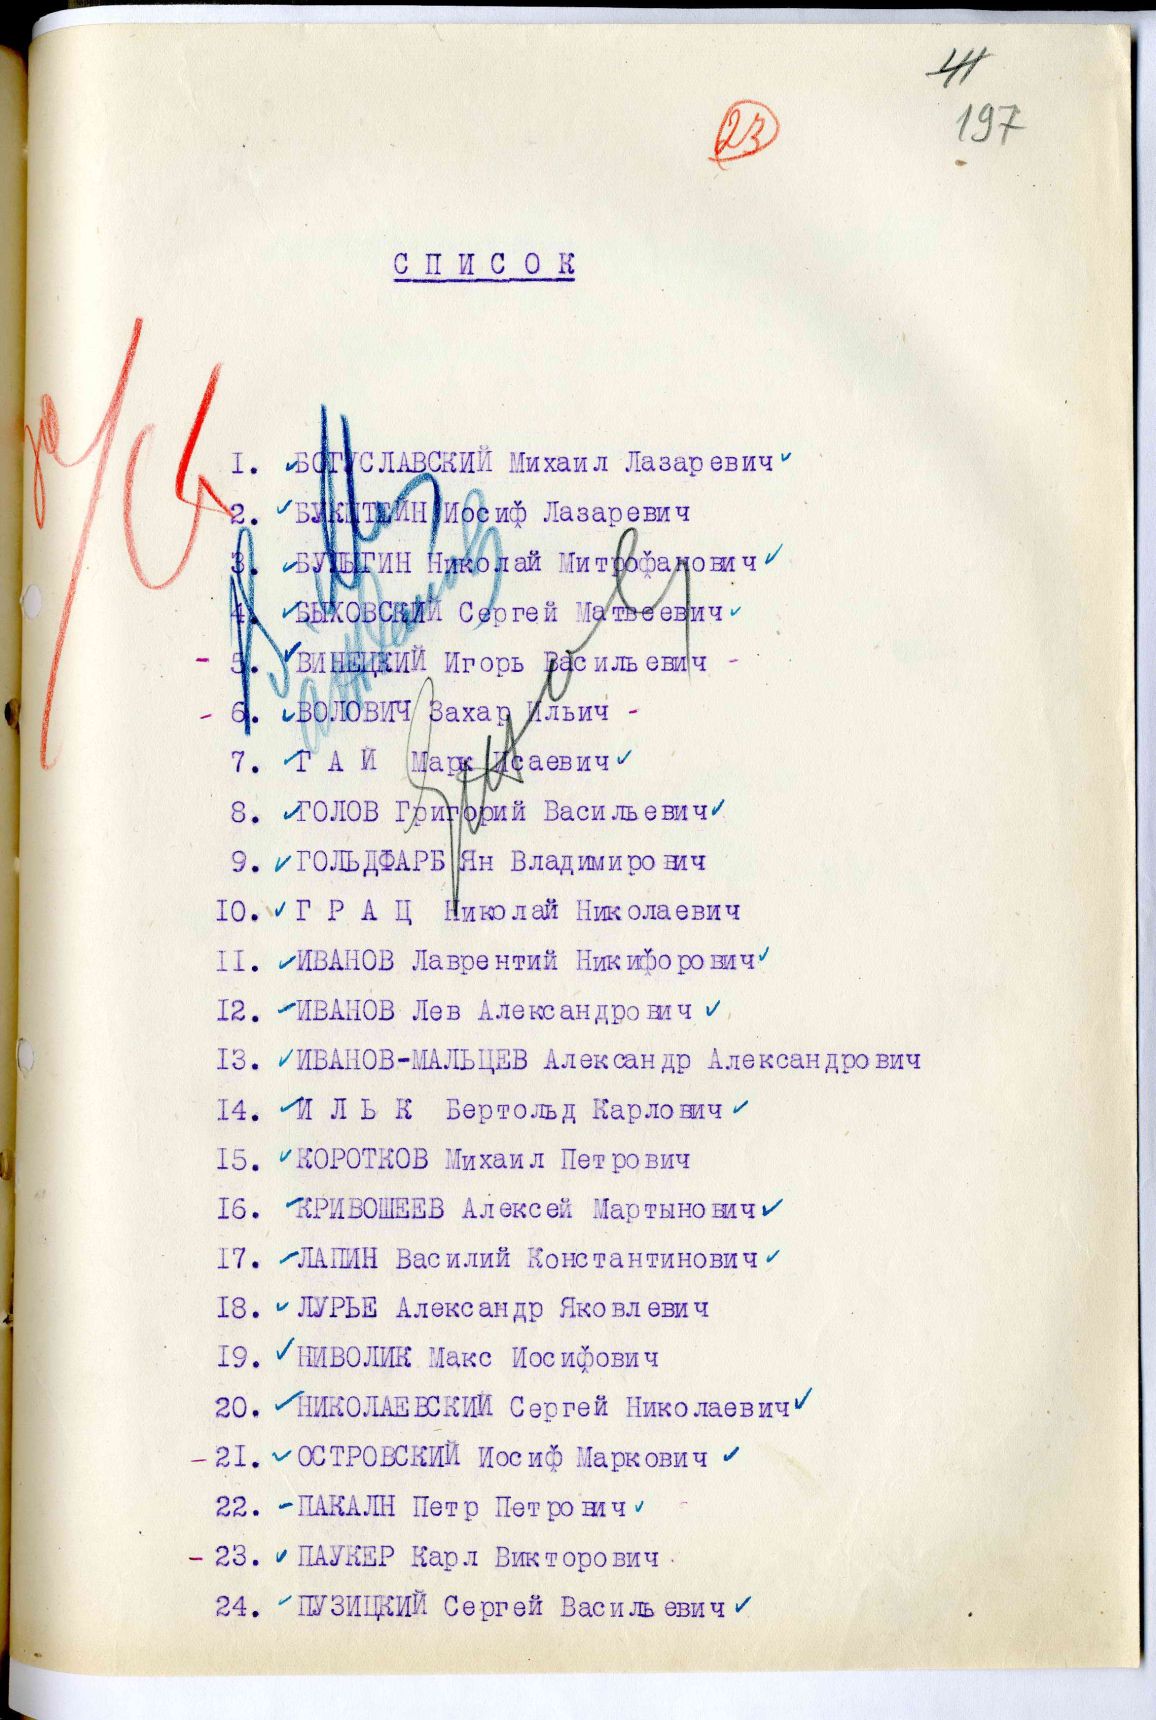 197
23
СПИСОК
за
I. БОГУСЛАВСКИЙ Михаил Лазаревич
2. БУКШТЕЙН Иосиф Лазаревич
3. БУЛЫГИН Николай Митрофанович
4. БЫХОВСКИЙ Сергей Матвеевич
- 5. ВИНЕЦКИЙ Игорь Васильевич -
- 6. ВОЛОВИЧ Захар Ильич -
7. ГАЙ Марк Исаевич
8. ГОЛОВ Григорий Васильевич
9. ГОЛЬДФАРБ Ян Владимирович
IO. ГРАЦ Николай Николаевич
II. ИВАНОВ Лаврентий Никифорович
I2. ИВАНОВ Лев Александрович
I3. ИВАНОВ-МАЛЬЦЕВ Александр Александрович
I4. ИЛЬК Бертольд Карлович
I5. КОРОТКОВ Михаил Петрович
I6. КРИВОШЕЕВ Алексей Мартынович
I7. ЛАПИН Василий Константинович
I8. ЛУРЬЕ Александр Яковлевич
I9. НИВОЛИК Макс Иосифович
20. НИКОЛАЕВСКИЙ Сергей Николаевич
- 2I. ОСТРОВСКИЙ Иосиф Маркович
22. ПАКАЛН Петр Петрович
- 23. ПАУКЕР Карл Викторович
24. ПУЗИЦКИЙ Сергей Васильевич